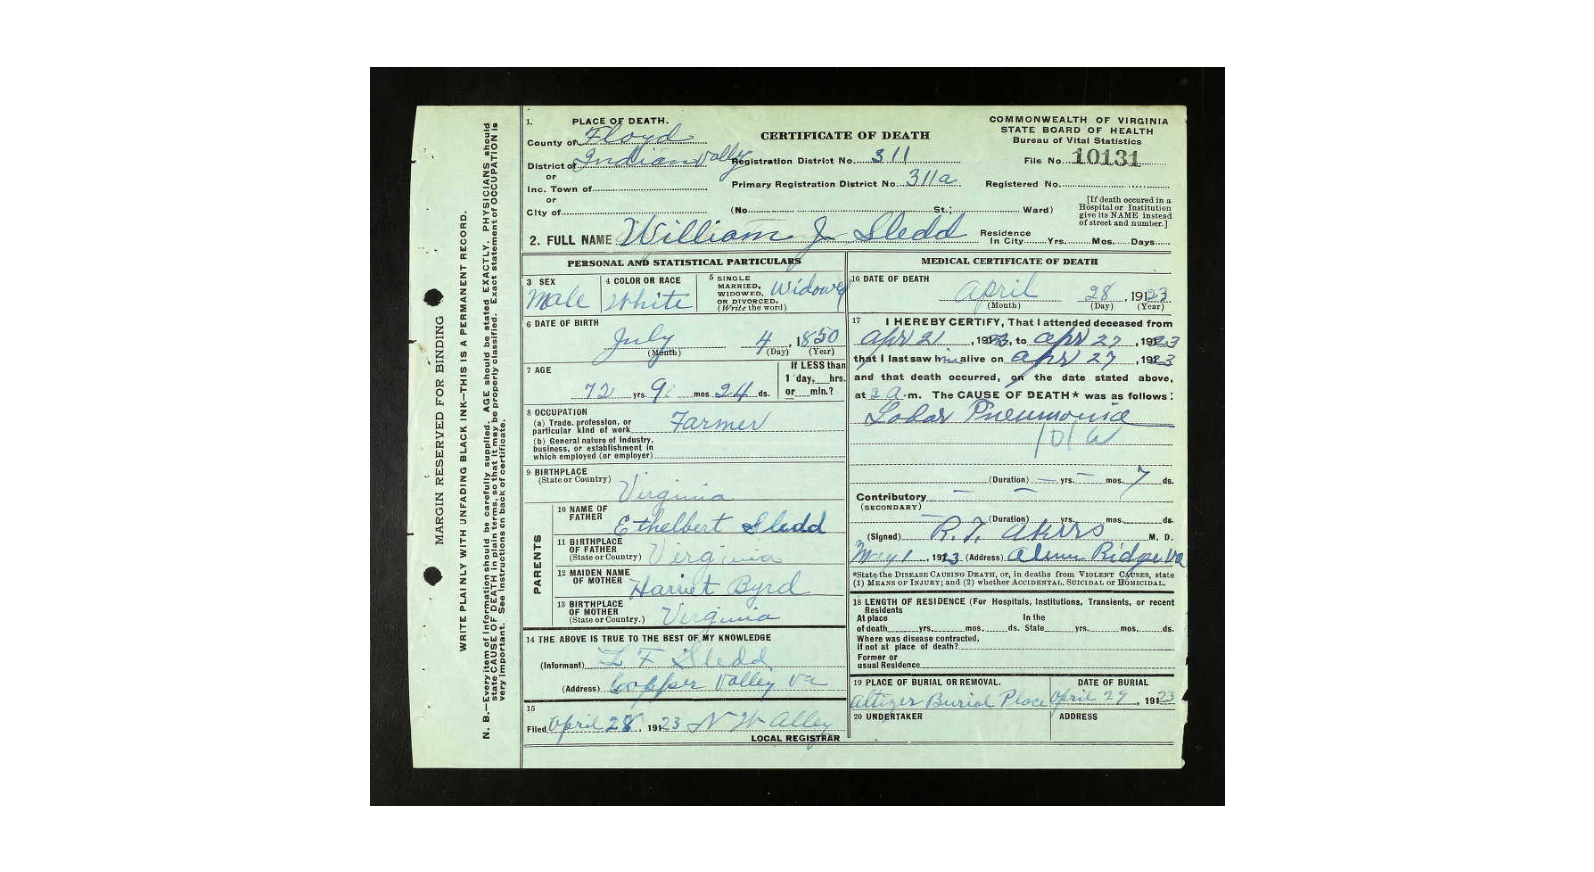 MARGIN RESERVED FOR BINDING
WRITE PLAINLY WITH UNFADING BLACK INK—THIS IS A PERMANENT RECORD.
N. B.—Every item of information should be carefully supplied. AGE should be stated EXACTLY. PHYSICIANS should
state CAUSE OF DEATH in plain terms, so that it may be properly classified. Exact statement of OCCUPATION is
very important. See instructions on back of certificate.
1. PLACE OF DEATH.
County of Floyd
District of Indian Valley
or
Inc. Town of
or
City of
CERTIFICATE OF DEATH
Registration District No. 311
Primary Registration District No. 311a
(No. St.; Ward)
COMMONWEALTH OF VIRGINIA
STATE BOARD OF HEALTH
Bureau of Vital Statistics
File No. 10131
Registered No.
[If death occured in a
Hospital or Institution
give its NAME instead
of street and number.]
2. FULL NAME William J Sledd
Residence
In City Yrs. Mos. Days
PERSONAL AND STATISTICAL PARTICULARS
3 SEX
Male
4 COLOR OR RACE
White
5 SINGLE
MARRIED,
WIDOWED,
OR DIVORCED.
(Write the word)
Widowed
6 DATE OF BIRTH
July 4, 1850
(Month) (Day) (Year)
7 AGE
72 yrs 9 mos 24 ds.
If LESS than
1 day, hrs.
or min.?
8 OCCUPATION
(a) Trade, profession, or
particular kind of work Farmer
(b) General nature of industry,
business, or establishment in
which employed (or employer)
9 BIRTHPLACE
(State or Country) Virginia
PARENTS
10 NAME OF
FATHER Ethelbert Sledd
11 BIRTHPLACE
OF FATHER
(State or Country) Virginia
12 MAIDEN NAME
OF MOTHER Harriet Byrd
13 BIRTHPLACE
OF MOTHER
(State or Country.) Virginia
14 THE ABOVE IS TRUE TO THE BEST OF MY KNOWLEDGE
(Informant) F Sledd
(Address) Copper Valley Va
15
Filed April 28, 1923 N W Alley
LOCAL REGISTRAR
MEDICAL CERTIFICATE OF DEATH
16 DATE OF DEATH
April 28, 1923
(Month) (Day) (Year)
17 I HEREBY CERTIFY, That I attended deceased from
Apr 21, 1923, to Apr 27, 1923
that I last saw him alive on Apr 27, 1923
and that death occurred, on the date stated above,
at 2 a. m. The CAUSE OF DEATH* was as follows:
Lobar Pneumonia
(Duration) — yrs. — mos. 7 ds.
Contributory — —
(SECONDARY)
(Duration) yrs. mos. ds.
(Signed) R. T. Akers M. D.
May 1, 1923 (Address) Ridge Va
*State the DISEASE CAUSING DEATH, or, in deaths from VIOLENT CAUSES, state
(1) MEANS OF INJURY; and (2) whether ACCIDENTAL, SUICIDAL or HOMICIDAL.
18 LENGTH OF RESIDENCE (For Hospitals, Institutions, Transients, or recent
Residents
At place In the
of death yrs. mos. ds. State yrs. mos. ds.
Where was disease contracted,
if not at place of death?
Former or
usual Residence
19 PLACE OF BURIAL OR REMOVAL. DATE OF BURIAL
Altizer Burial Place April 29, 1923
20 UNDERTAKER ADDRESS